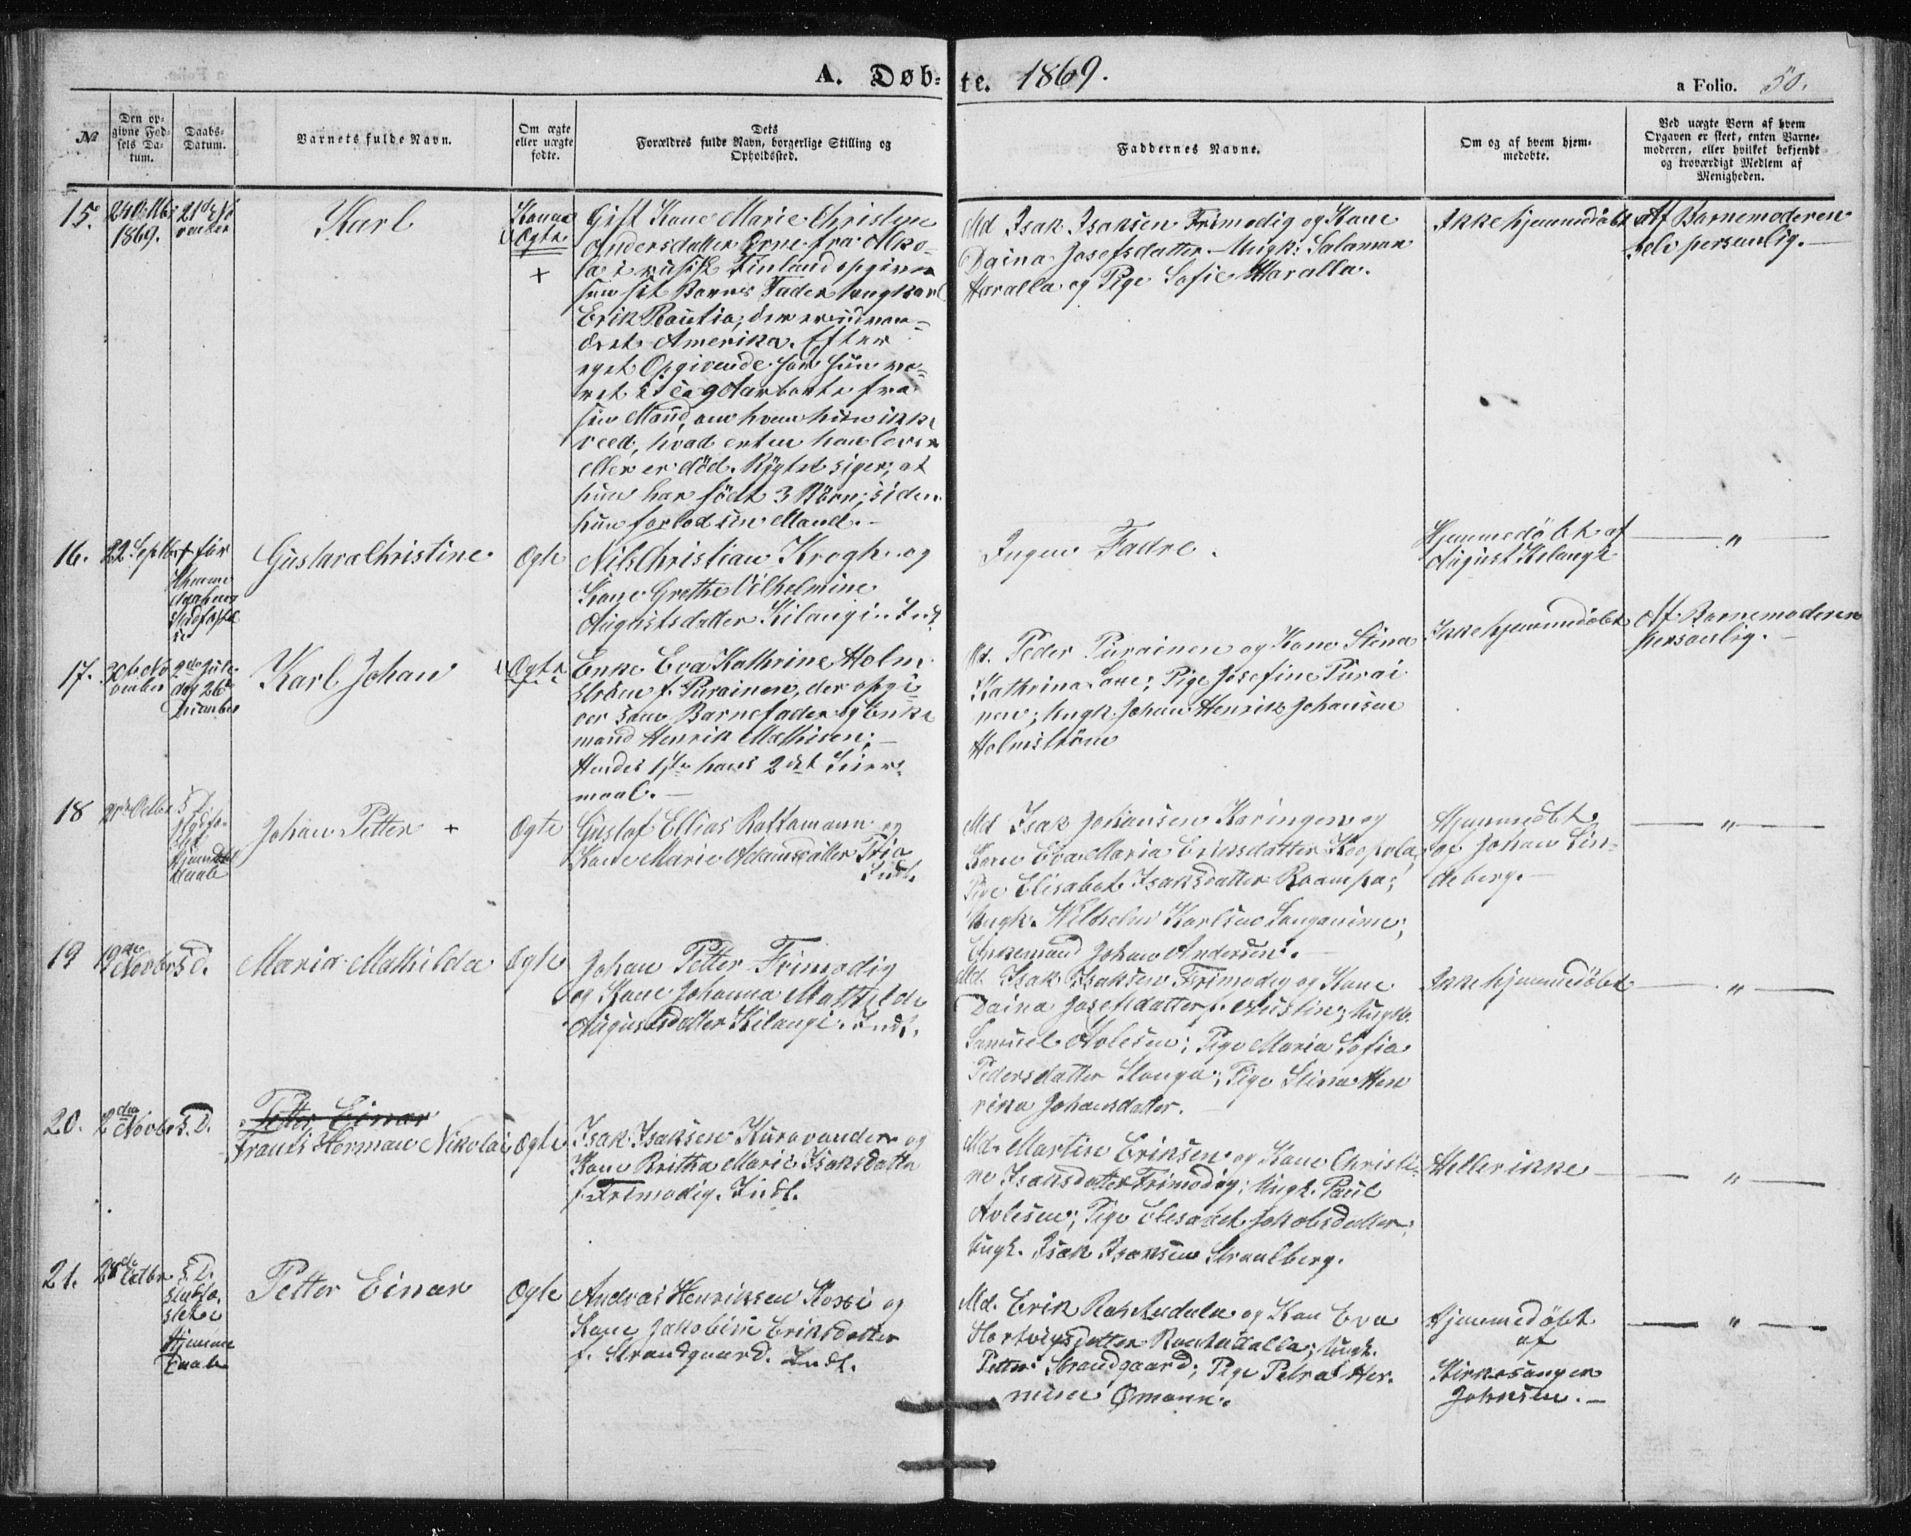 A. Døb-
te. 1869.
a Folio. 50.
№
Den op-
givne Fød-
sels Da-
tum.
Daabs-
Datum.
Barnets fulde Navn.
Om ægte
eller uægte
fødte.
Dets
Forældres fulde Navn, borgerlige Stilling og
Opholdssted.
Faddernes Navne.
Om og af hvem hjem-
medøbte.
Ved uægte Børn af hvem
Opgaven er skeet, enten Barne-
moderen, eller hvilket bekjendt
og troværdigt Medlem af
Menigheden.
15.
1869.
21de
Karl
Uægte
+
Gift Kone Marie Christine
Andersdatter Erne fra
i russisk Finland opgiver
som sit Barns Fader Ungkarl
Erik Rautio, der er udvan-
dret Amerika. Efter
eget Opgivende har hun væ-
ret i 9 Aar borte fra
sin Mand, om hvem hun ikke
veed, hvad enten han lever
eller er død. Rygtet siger, at
hun har født 3 Børn, siden
hun forlod sin Mand.-
Md Isak Isaksen Frimodig og Kone
Daina Josefsdatter. Ungk: Salomon
Haralla og Pige Sofie Haralla.
Ikke hjemmedøbt
Af Barnemoderen
selv personlig.-
16.
22 Septbr
+ før
Gustava Christine
Ægte
Nils Christian Krogh og
Kone Grethe Vilhelmine
Augustsdatter Kilangi. Indl.
Ingen Fadre.
Hjemmedøbt af
August Kilangi
— " —
17.
30te No
vember
2den Jule
dag 26de
December
Karl Johan
Uægte
Enke Eva Kathrine Holm
strøm f. Purainen, der opgi
ver som Barnefader Enke
mand Henrik Mathisen;-
Hendes 1ste hans 2det Leier-
maal.-
Peder Purainen og Kone Stina
Kathrina; Pige Josefine Purai
nen; Ungk. Johan Henrik Johansen
Holmstrøm
Ikke hjemmedøbt
Af Barnemoderen
personlig.-
18
Octbr
S. D.
Hjemme
daab
Johan Petter +
Ægte
Gustaf Ellias Rattamann og
Kone Marie Adamsdatter
Indl.
Md Isak Johansen Karingen og
Kone Eva Maria Eriksdatter
Pige Elisabet Isaksdatter
Ungk. Wilhelm Karlsen
Enkemand Johan Andersen.-
Hjemmedøbt
af Johan Lin-
deberg.-
— " —
19
19de
Novbr
S. D.
Maria Mathilda
Ægte
Johan Petter Frimodig
og Kone Johanna Mathilde
Augustsdatter Kilangi. Indl.
Md. Isak Isaksen Frimodig og Kone
Daina Josefsdatter f. Austin; Ungk.
Samuel Olesen; Pige Maria Sofia
Pedersdatter; Pige Stina Hen
rika Johansdatter.-
Ikke hjemmedøbt
— " —
20.
2den
Novbr
S. D.
Petter Einar
Frants Herman Nikolai
Ægte
Isak Isaksen Kuravander og
Kone Britha Marie Isaksdatter
f. Frimodig. Indl.
Md. Martin Eriksen og Kone Christi-
ne Isaksdatter Frimodig; Ungk. Paul
Pige Elisabet Jakobsdatter;
Ungk. Isak Isaksen Straalberg.
Heller ikke
— " —
21.
28de
Octbr
S. D.
stadfæ-
stet
Hjemme
daab
Petter Einar
Ægte
Andreas Henriksen Koski og
Kone Jakobine Eriksdatter
f. Strandgaard. Indl.
Md. Erik og Kone Eva
Hertvigsdatter; Ungk.
Petter Strandgaard; Pige Petra Her-
mine Ørmann.
Hjemmedøbt
af
Kirkesanger
Johnsen.-
— " —